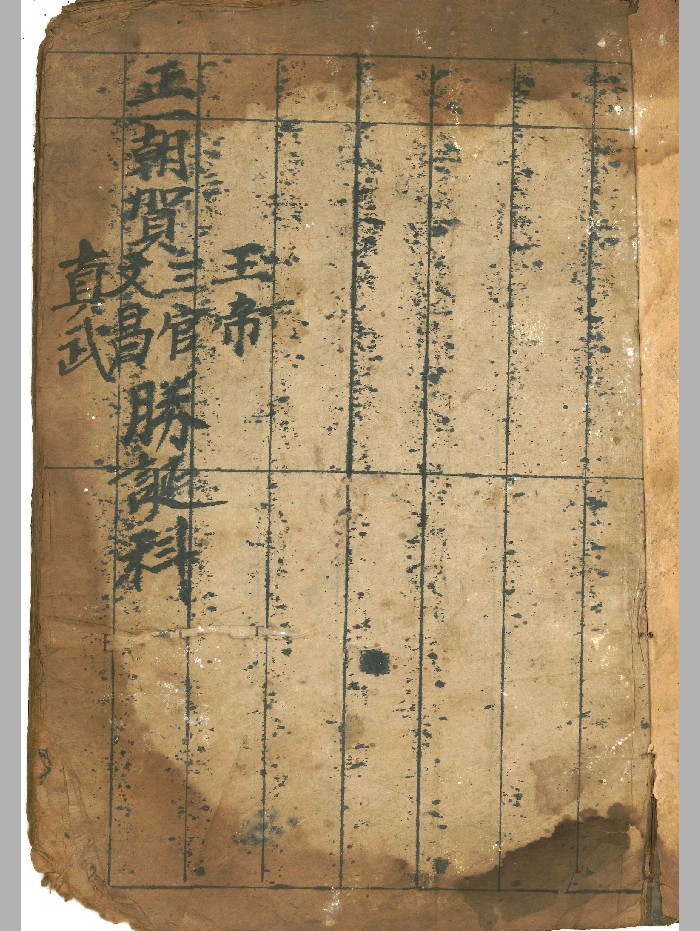 正一朝賀
玉帝
三官
文昌
真武
勝誕科